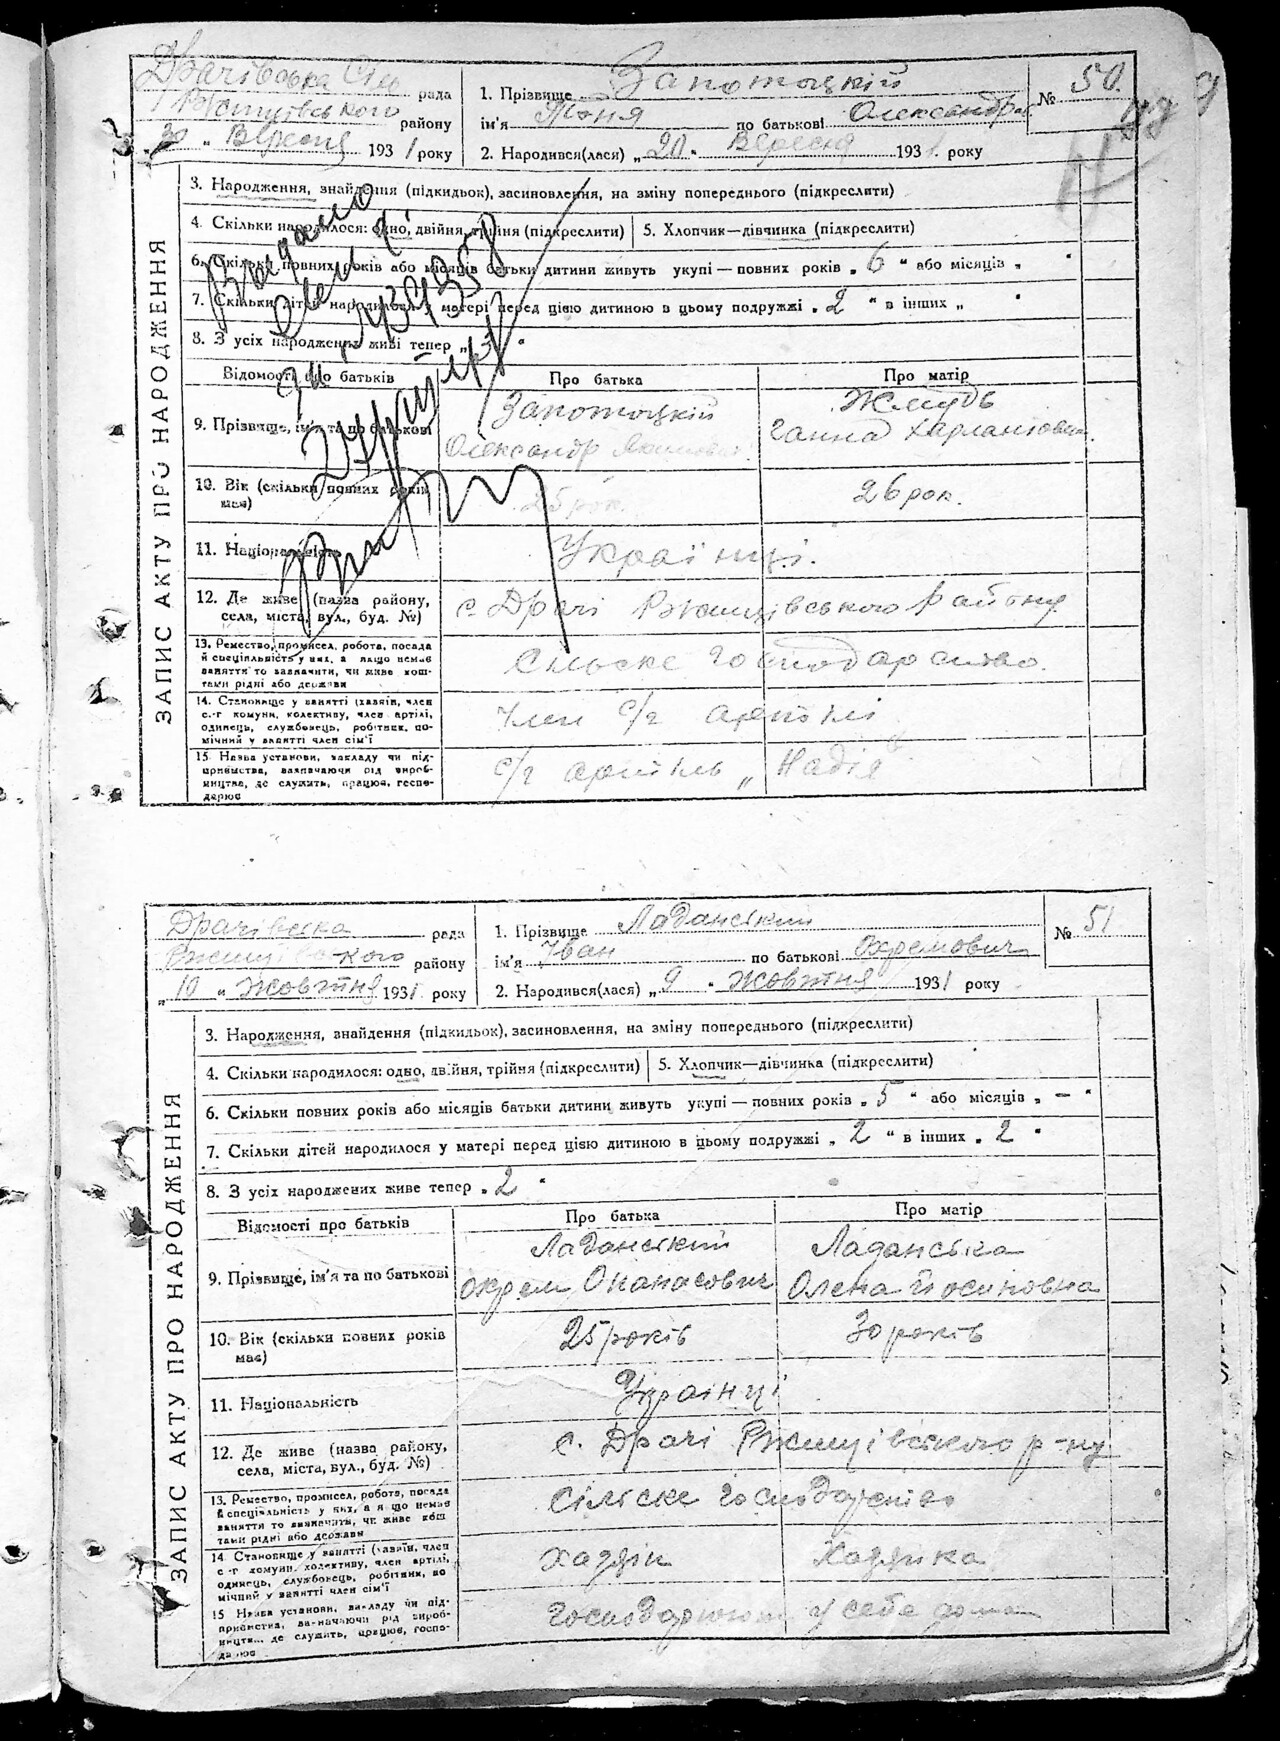 Драчівська Сіл рада
Ржищівського району
„ 30 „ Вересня 1931 року
1. Прізвище Запотоцкій
ім'я Тоня по батькові Олександров.
2. Народився(лася) „ 20 „ Вересня 1931 року
№ 50.
ЗАПИС АКТУ ПРО НАРОДЖЕННЯ
3. Народження, знайдення (підкидьок), засиновлення, на зміну попереднього (підкреслити)
4. Скільки народилося: одно, двійня, трійня (підкреслити) 5. Хлопчик—дівчинка (підкреслити)
6. Скільки повних років або місяців батьки дитини живуть укупі — повних років „ 6 “ або місяців „ “
7. Скільки дітей народилося у матері перед цією дитиною в цьому подружжі „ 2 “ в інших „ “
8. З усіх народжених живі тепер „ 3 “
Відомості про батьків Про батька Про матір
9. Прізвище, ім'я та по батькові
Запотоцкій
Олександр
Жмудь
Ганна
10. Вік (скільки повних років має) 25 рок. 26 рок.
11. Національність Українці.
12. Де живе (назва району, с. Драчі Ржищівського району
села, міста, вул., буд. №)
13. Ремество, промисел, робота, посада
й спеціяльність у них, а якщо немає
заняття то зазначити, чи живе кош-
тами рідні або держави
Сільське господарство.
14. Становище у занятті (хазяїн, член
с.-г комуни, колективу, член артілі,
одинець, службовець, робітник, по-
мічний у занятті член сім'ї
член с/г артілі
15. Назва установи, закладу чи під-
приємства, зазначаючи рід вироб-
ництва, де служить, працює, госпо-
дарює
с/г артіль „Надія“
Драчівська рада
Ржищівського району
„ 10 „ Жовтня 1931 року
1. Прізвище Ладанський
ім'я Іван по батькові Охремович
2. Народився(лася) „ 9 „ Жовтня 1931 року
№ 51
ЗАПИС АКТУ ПРО НАРОДЖЕННЯ
3. Народження, знайдення (підкидьок), засиновлення, на зміну попереднього (підкреслити)
4. Скільки народилося: одно, двійня, трійня (підкреслити) 5. Хлопчик—дівчинка (підкреслити)
6. Скільки повних років або місяців батьки дитини живуть укупі — повних років „ 5 “ або місяців „ – “
7. Скільки дітей народилося у матері перед цією дитиною в цьому подружжі „ 2 “ в інших „ 2 “
8. З усіх народжених живе тепер „ 2 “
Відомості про батьків Про батька Про матір
9. Прізвище, ім'я та по батькові
Ладанський
Охрем Опанасович
Ладанська
Олена Йосиповна
10. Вік (скільки повних років має) 25 років 30 років
11. Національність Українці
12. Де живе (назва району, с. Драчі Ржищівського р-ну
села, міста, вул., буд. №)
13. Ремество, промисел, робота, посада
й спеціяльність у них, а якщо немає
заняття то зазначити, чи живе кош-
тами рідні або держави
Сільске господарство
14. Становище у занятті (хазяїн, член
с.-г комуни, колективу, член артілі,
одинець, службовець, робітник, по-
мічний у занятті член сім'ї
хазяїн Хазяйка
15 Назва установи, закладу чи під-
приємства, зазначаючи рід вироб-
ництва, де служить, працює, госпо-
дарює
Господарюють у себе дома